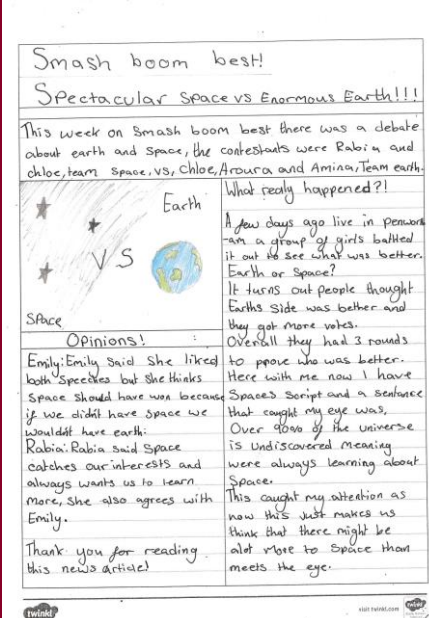 Smash boom best!
Spectacular space vs Enormous Earth!!!
This week on Smash boom best there was a debate
about earth and space, the contestants were Rabia and
chloe, team space, vs, Chloe, Aroura and Amina, Team earth.
Earth
VS
Space
Opinions!
Emily: Emily said she liked
both speeches but she thinks
space should have won because
if we didn't have space we
wouldn't have earth.
Rabia: Rabia said space
catches our interests and
always wants us to learn
more, she also agrees with
Emily.
Thank you for reading
this news article!
What realy happened?!
A few days ago live in penwort
-am a group of girls battled
it out to see what was better.
Earth or Space?
It turns out people thought
Earths side was better and
they got more votes.
Overall they had 3 rounds
to prove who was better.
Here with me now I have
Spaces script and a sentance
that caught my eye was,
Over 90% of the universe
is undiscovered meaning
were always learning about
Space.
This caught my attention as
now this just makes us
think that there might be
alot more to space than
meets the eye.
twinkl
visit twinkl.com
twinkl